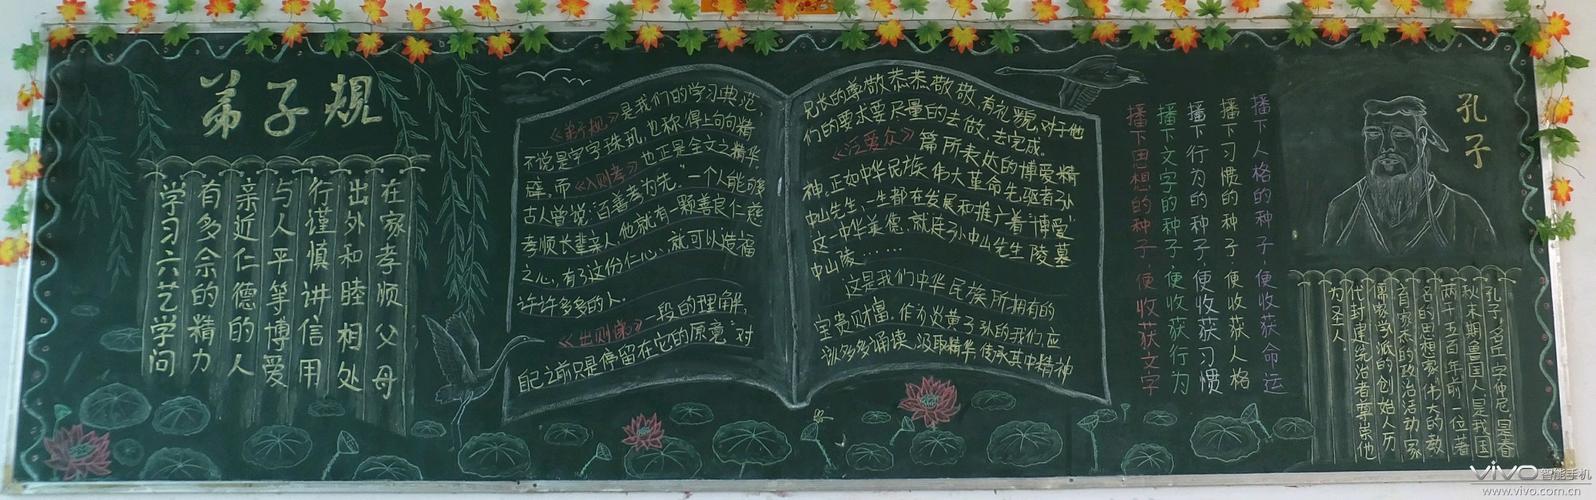 弟子规
在家孝顺父母
出外和睦相处
行谨慎讲信用
与人平等博爱
亲近仁德的人
有多余的精力
学习六艺学问
《弟子规》是我们的学习典范,
不说是字字珠玑,也称得上句句精
辟,而《入则孝》也正是全文之精华
古人曾说:"百善孝为先."一个人能够
孝顺长辈亲人,他就有一颗善良仁慈
之心,有了这份仁心,就可以造福
许许多多的人.
《出则弟》一段的理解,
自己之前只是停留在它的原意"对
兄长的尊敬恭恭敬敬,有礼貌,对于他
们的要求要尽量的去做、去完成。
《泛爱众》篇所表达的博爱精
神,正如中华民族伟大革命先驱者孙
中山先生,一生都在发展和推广着"博爱"
这一中华美德,就连孙中山先生陵墓
中山陵……
这是我们中华民族所拥有的
宝贵财富,作为炎黄子孙的我们,应
该多多诵读,汲取精华,传承其中精神
播下人格的种子,便收获命运
播下习惯的种子,便收获人格
播下行为的种子,便收获习惯
播下文字的种子,便收获行为
播下思想的种子,便收获文字
孔子
孔子,名丘,字仲尼,是春
秋末期鲁国人,是我国
两千五百年前一位著
名的思想家,伟大的教
育家杰的政治活动家
儒家学派的创始人,历
代封建统治者尊崇他
为圣人.
vivo智能手机
www.vivo.com.cn